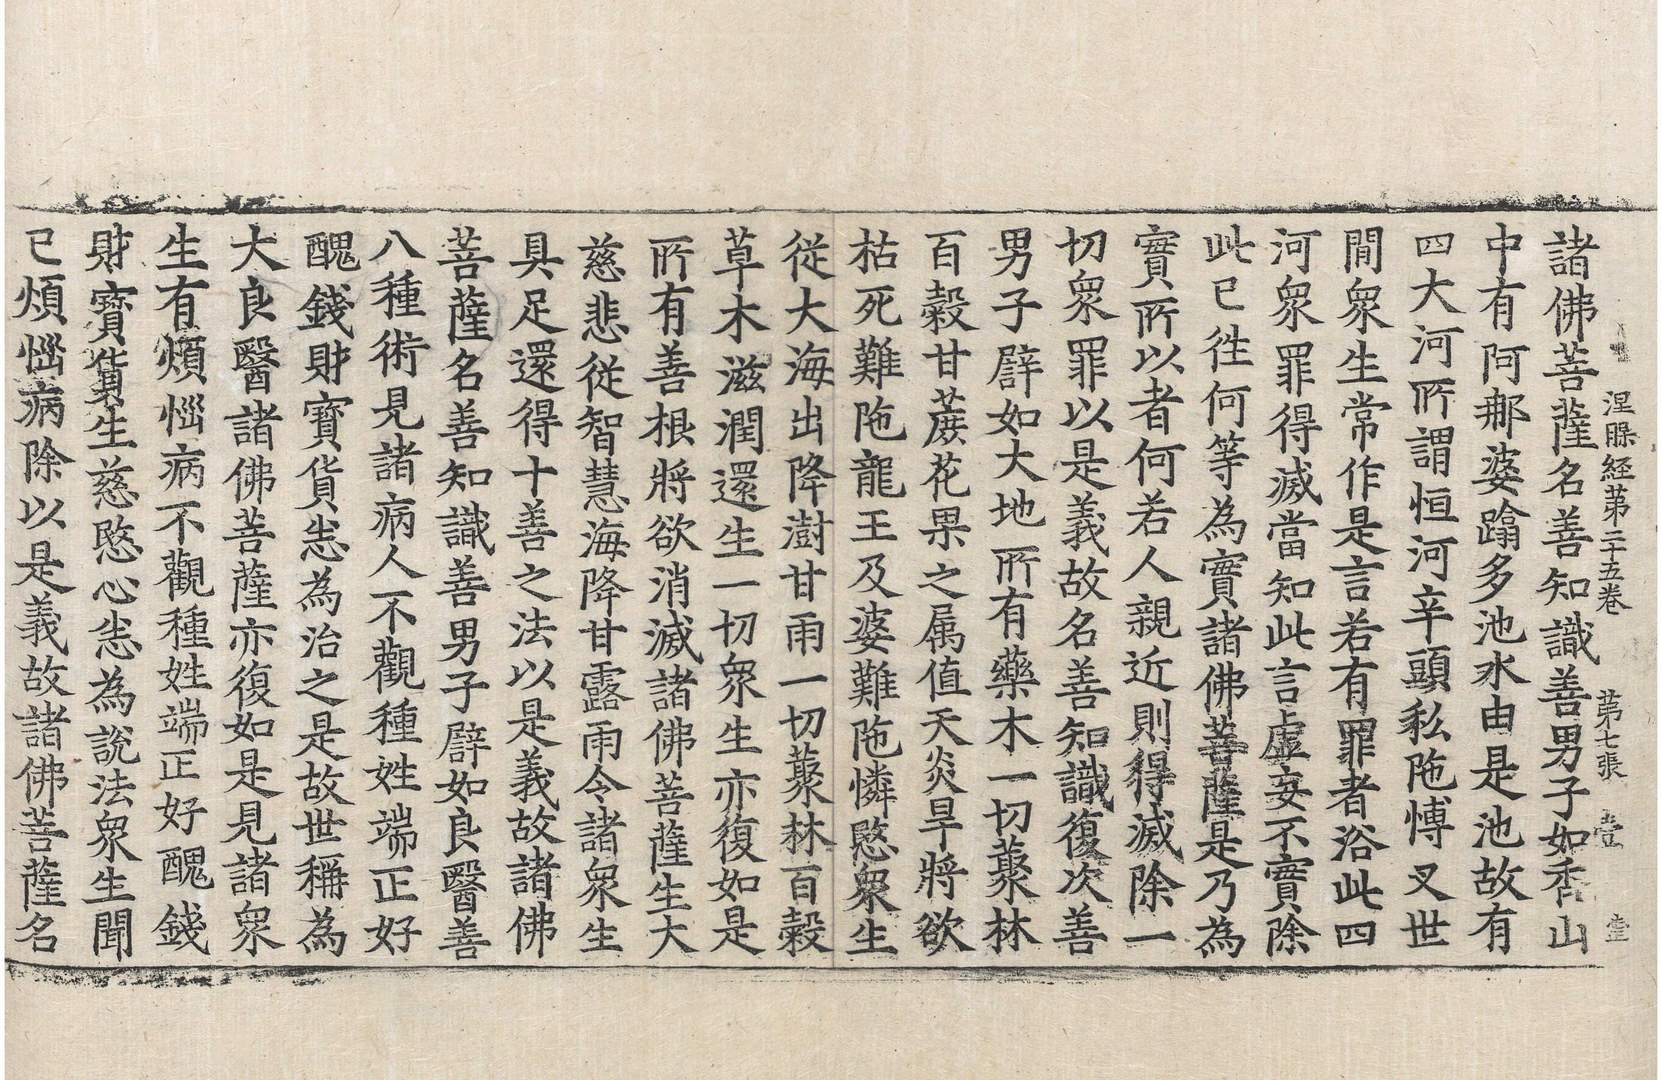 涅槃経第二十五卷 第七張 壹 壹
諸佛菩薩名善知識善男子如香山
中有阿那婆蹹多池水由是池故有
四大河所謂恒河辛頭私陁愽叉世
閒衆生常作是言若有罪者浴此四
河衆罪得滅當知此言虛妄不實除
此已往何等為實諸佛菩薩是乃為
實所以者何若人親近則得滅除一
切衆罪以是義故名善知識復次善
男子譬如大地所有藥木一切藂林
百穀甘蔗花果之属值天炎旱將欲
枯死難陁龍王及婆難陁憐愍衆生
從大海出降澍甘雨一切藂林百穀
草木滋潤還生一切衆生亦復如是
所有善根將欲消滅諸佛菩薩生大
慈悲從智慧海降甘露雨令諸衆生
具足還得十善之法以是義故諸佛
菩薩名善知識善男子譬如良醫善
八種術見諸病人不觀種姓端正好
醜錢財寶貨悉為治之是故世稱為
大良醫諸佛菩薩亦復如是見諸衆
生有煩惱病不觀種姓端正好醜錢
財寶貨生慈愍心悉為說法衆生聞
已煩惱病除以是義故諸佛菩薩名